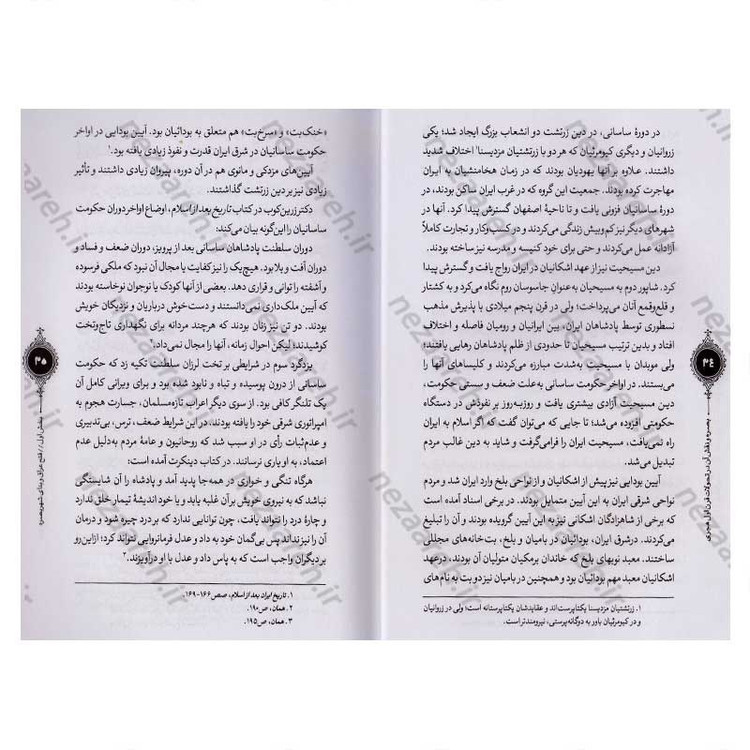 در دورهٔ ساسانی، در دین زرتشت دو انشعاب بزرگ ایجاد شد؛ یکی
زروانیان و دیگری کیومرثیان که هر دو با زرتشتیان مزدیسنا۱ اختلاف شدید
داشتند. علاوه بر آنها یهودیان بودند که در زمان هخامنشیان به ایران
مهاجرت کرده بودند. جمعیت این گروه که در غرب ایران ساکن بودند، در
دورهٔ ساسانیان فزونی یافت و تا ناحیهٔ اصفهان گسترش پیدا کرد. آنها در
شهرهای دیگر نیز کم‌وبیش زندگی می‌کردند و در کسب‌وکار و تجارت کاملاً
آزادانه عمل می‌کردند و حتی برای خود کنیسه و مدرسه نیز ساخته بودند.
دین مسیحیت نیز از عهد اشکانیان در ایران رواج یافت و گسترش پیدا
کرد. شاپور دوم به مسیحیان به‌عنوان جاسوسان روم نگاه می‌کرد و به کشتار
و قلع‌وقمع آنان می‌پرداخت؛ ولی در قرن پنجم میلادی با پذیرش مذهب
نسطوری توسط پادشاهان ایران، بین ایرانیان و رومیان فاصله و اختلاف
افتاد و بدین ترتیب مسیحیان تا حدودی از ظلم پادشاهان رهایی یافتند؛
ولی موبدان با مسیحیت به‌شدت مبارزه می‌کردند و کلیساهای آنها را
می‌بستند. در اواخر حکومت ساسانی به‌علت ضعف و سستی حکومت،
دین مسیحیت آزادی بیشتری یافت و روزبه‌روز بر نفوذش در دستگاه
حکومتی افزوده می‌شد؛ تا جایی که می‌توان گفت که اگر اسلام به ایران
راه نمی‌یافت، مسیحیت ایران را فرامی‌گرفت و شاید به دین غالب مردم
تبدیل می‌شد.
آیین بودایی نیز پیش از اشکانیان و از نواحی بلخ وارد ایران شد و مردم
نواحی شرقی ایران به این آیین متمایل بودند. در برخی اسناد آمده است
که برخی از شاهزادگان اشکانی نیز به این آیین گرویده بودند و آن را تبلیغ
می‌کردند. درشرق ایران، بودائیان در بامیان و بلخ، بت‌خانه‌های مجللی
ساختند. معبد نوبهای بلخ که خاندان برمکیان متولیان آن بودند، درعهد
اشکانیان معبد مهم بودائیان بود و همچنین در بامیان نیز دو بت به نام‌های
۱. زرتشتیان مزدیسنا یکتاپرست‌اند و عقایدشان یکتاپرستانه است؛ ولی در زروانیان
و در کیومرثیان باور به دوگانه‌پرستی، نیرومندتر است.
۳۴
بصره و نقش آن در تحولات قرن اول هجری
«خنک‌بت» و «سرخ‌بت» هم متعلق به بودائیان بود. آیین بودایی در اواخر
حکومت ساسانیان در شرق ایران قدرت و نفوذ زیادی یافته بود.۱
آیین‌های مزدکی و مانوی هم در آن دوره، پیروان زیادی داشتند و تأثیر
زیادی نیز بر دین زرتشت گذاشتند.
دکتر زرین‌کوب در کتاب تاریخ بعد از اسلام، اوضاع اواخر دوران حکومت
ساسانیان را این‌گونه بیان می‌کند:
دوران سلطنت پادشاهان ساسانی بعد از پرویز، دوران ضعف و فساد و
دوران آفت و بلا بود. هیچ‌یک را نیز کفایت یا مجال آن نبود که ملکی فرسوده
و آشفته را توانی و قراری دهد. بعضی از آنها کودک یا نوجوان نوخاسته بودند
که آیین ملک‌داری نمی‌دانستند و دست‌خوش درباریان و نزدیکان خویش
بودند. دو تن نیز زنان بودند که هرچند مردانه برای نگهداری تاج‌وتخت
کوشیدند؛ لیکن احوال زمانه، آنها را مجال نمی‌داد.۲
یزدگرد سوم در شرایطی بر تخت لرزان سلطنت تکیه زد که حکومت
ساسانی از درون پوسیده و تباه و نابود شده بود و برای ویرانی کامل آن
یک تلنگر کافی بود. از سوی دیگر اعراب تازه‌مسلمان، جسارت هجوم به
امپراتوری شرقی خود را یافته بودند. در این شرایط ضعف، ترس، بی‌تدبیری
و عدم‌ثبات رأی در او سبب شد که روحانیون و عامهٔ مردم به‌دلیل عدم
اعتماد، به او یاری نرسانند. در کتاب دینکرت آمده است:
هرگاه تنگی و خواری در همه‌جا پدید آمد و پادشاه را آن شایستگی
نباشد که به نیروی خویش بر آن غلبه یابد و یا خود اندیشهٔ تیمار خلق ندارد
و چارهٔ درد را نتواند یافت، چون توانایی ندارد که بر درد چیره شود و درمان
آن را نیز نداند پس بی‌گمان خود به داد و عدل فرمانروایی نتواند کرد؛ ازاین‌رو
بر دیگران واجب است که به پاس داد و عدل با او درآویزند.۳
۱. تاریخ ایران بعد از اسلام، صص۱۶۶-۱۶۹.
۲. همان، ص۱۸۰.
۳. همان، ص۱۹۵.
۳۵
بخش اول // فتح عراق و بنای شهر بصره
nezaareh.ir